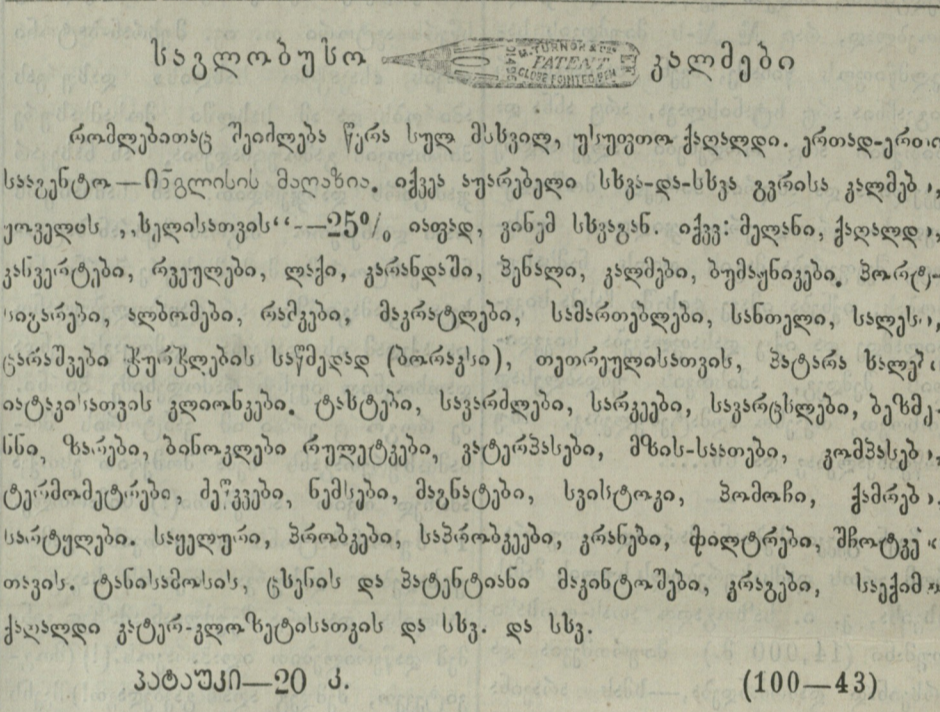 საგლობუსო კალმები
D. TURNOR & Co's PATENT GLOBE POINTED PEN
რომლებითაც შეიძლება წერა სულ მსხვილ, უსუფთო ქაღალდი. ერთად-ერთი
სააგენტო—ინგლისის მაღაზია. იქვეა აუარებელი სხვა-და-სხვა გვრისა კალმები,
ყოველის „ხელისათვის“—25% იაფად, ვინემ სხვაგან. იქვე: მელანი, ქაღალდი,
კანვერტები, რვეულები, ლაქი, კარანდაში, პენალი, კალმები, ბუმაჟნიკები, პორტ-
სიგარები, ალბომები, რამკები, მაკრატლები, სამართებლები, სანთელი,
ცარაშვები ჭურჭლების საწმედად (ბორაკსი), თეთრეულისათვის, პატარა
იატაკისათვის კლიონკები. ტასტები, სავარძლები, სარკეები, სავარცხლები, ბეზმე-
ნნი, ზარები, ბინოკლები რულეტკები, ვატერპასები, მზის-საათები, კომპასები,
ტერმომეტრები, ძეწკვები, ნემსები, მაგნატები, სვისტოკი, პომოჩი, ქამრები,
სარტყლები. საყელური, პრობკები, საპრობკეები, კრანები, ფილტრები, შჩოტკე
თავის. ტანისამოსის, ცხენის და პატენტიანი მაკინტოშები, კრაგები,
ქაღალდი კატერ-კლოზეტისათვის და სხვ. და სხვ.
პატაუკი—20 კ. (100—43)